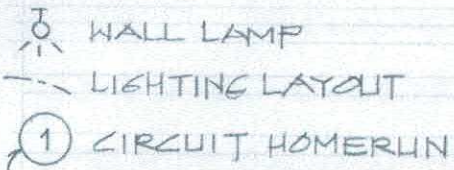 WALL LAMP
LIGHTING LAYOUT
1 CIRCUIT HOMERUN